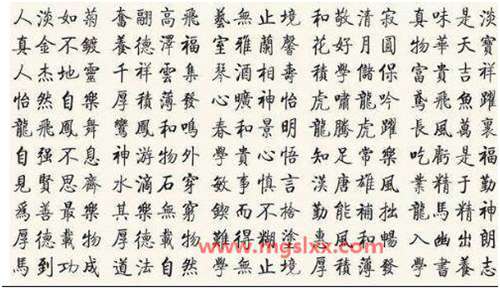 人淡如菊 奮翮高飛 藝無止境 和敬清寂 真味是淡
真金不鍍 養德澤福 室雅蘭馨 花好月圓 物華天寶
人杰地靈 千祥雲集 琴酒相壽 積學儲保 富貴吉祥
怡然自樂 厚積薄發 心曠神怡 虎嘯龍吟 鳶飛魚躍
龍飛鳳舞 鸞鳳和鳴 春和景明 龍騰虎躍 長風萬裏
自强不息 神游物外 學貴心悟 知足常樂 吃虧是福
見賢思齊 水滴石穿 敏事慎言 漢唐雄風 業精于勤
爲善最樂 其樂無窮 鍥而不捨 勤能補拙 龍馬精神
厚德載物 厚德載物 難得糊塗 惠風和暢 龍入幽出朗
馬到功成 道法自然 學無止境 厚積薄發 學書養志
www.mgslxx.com